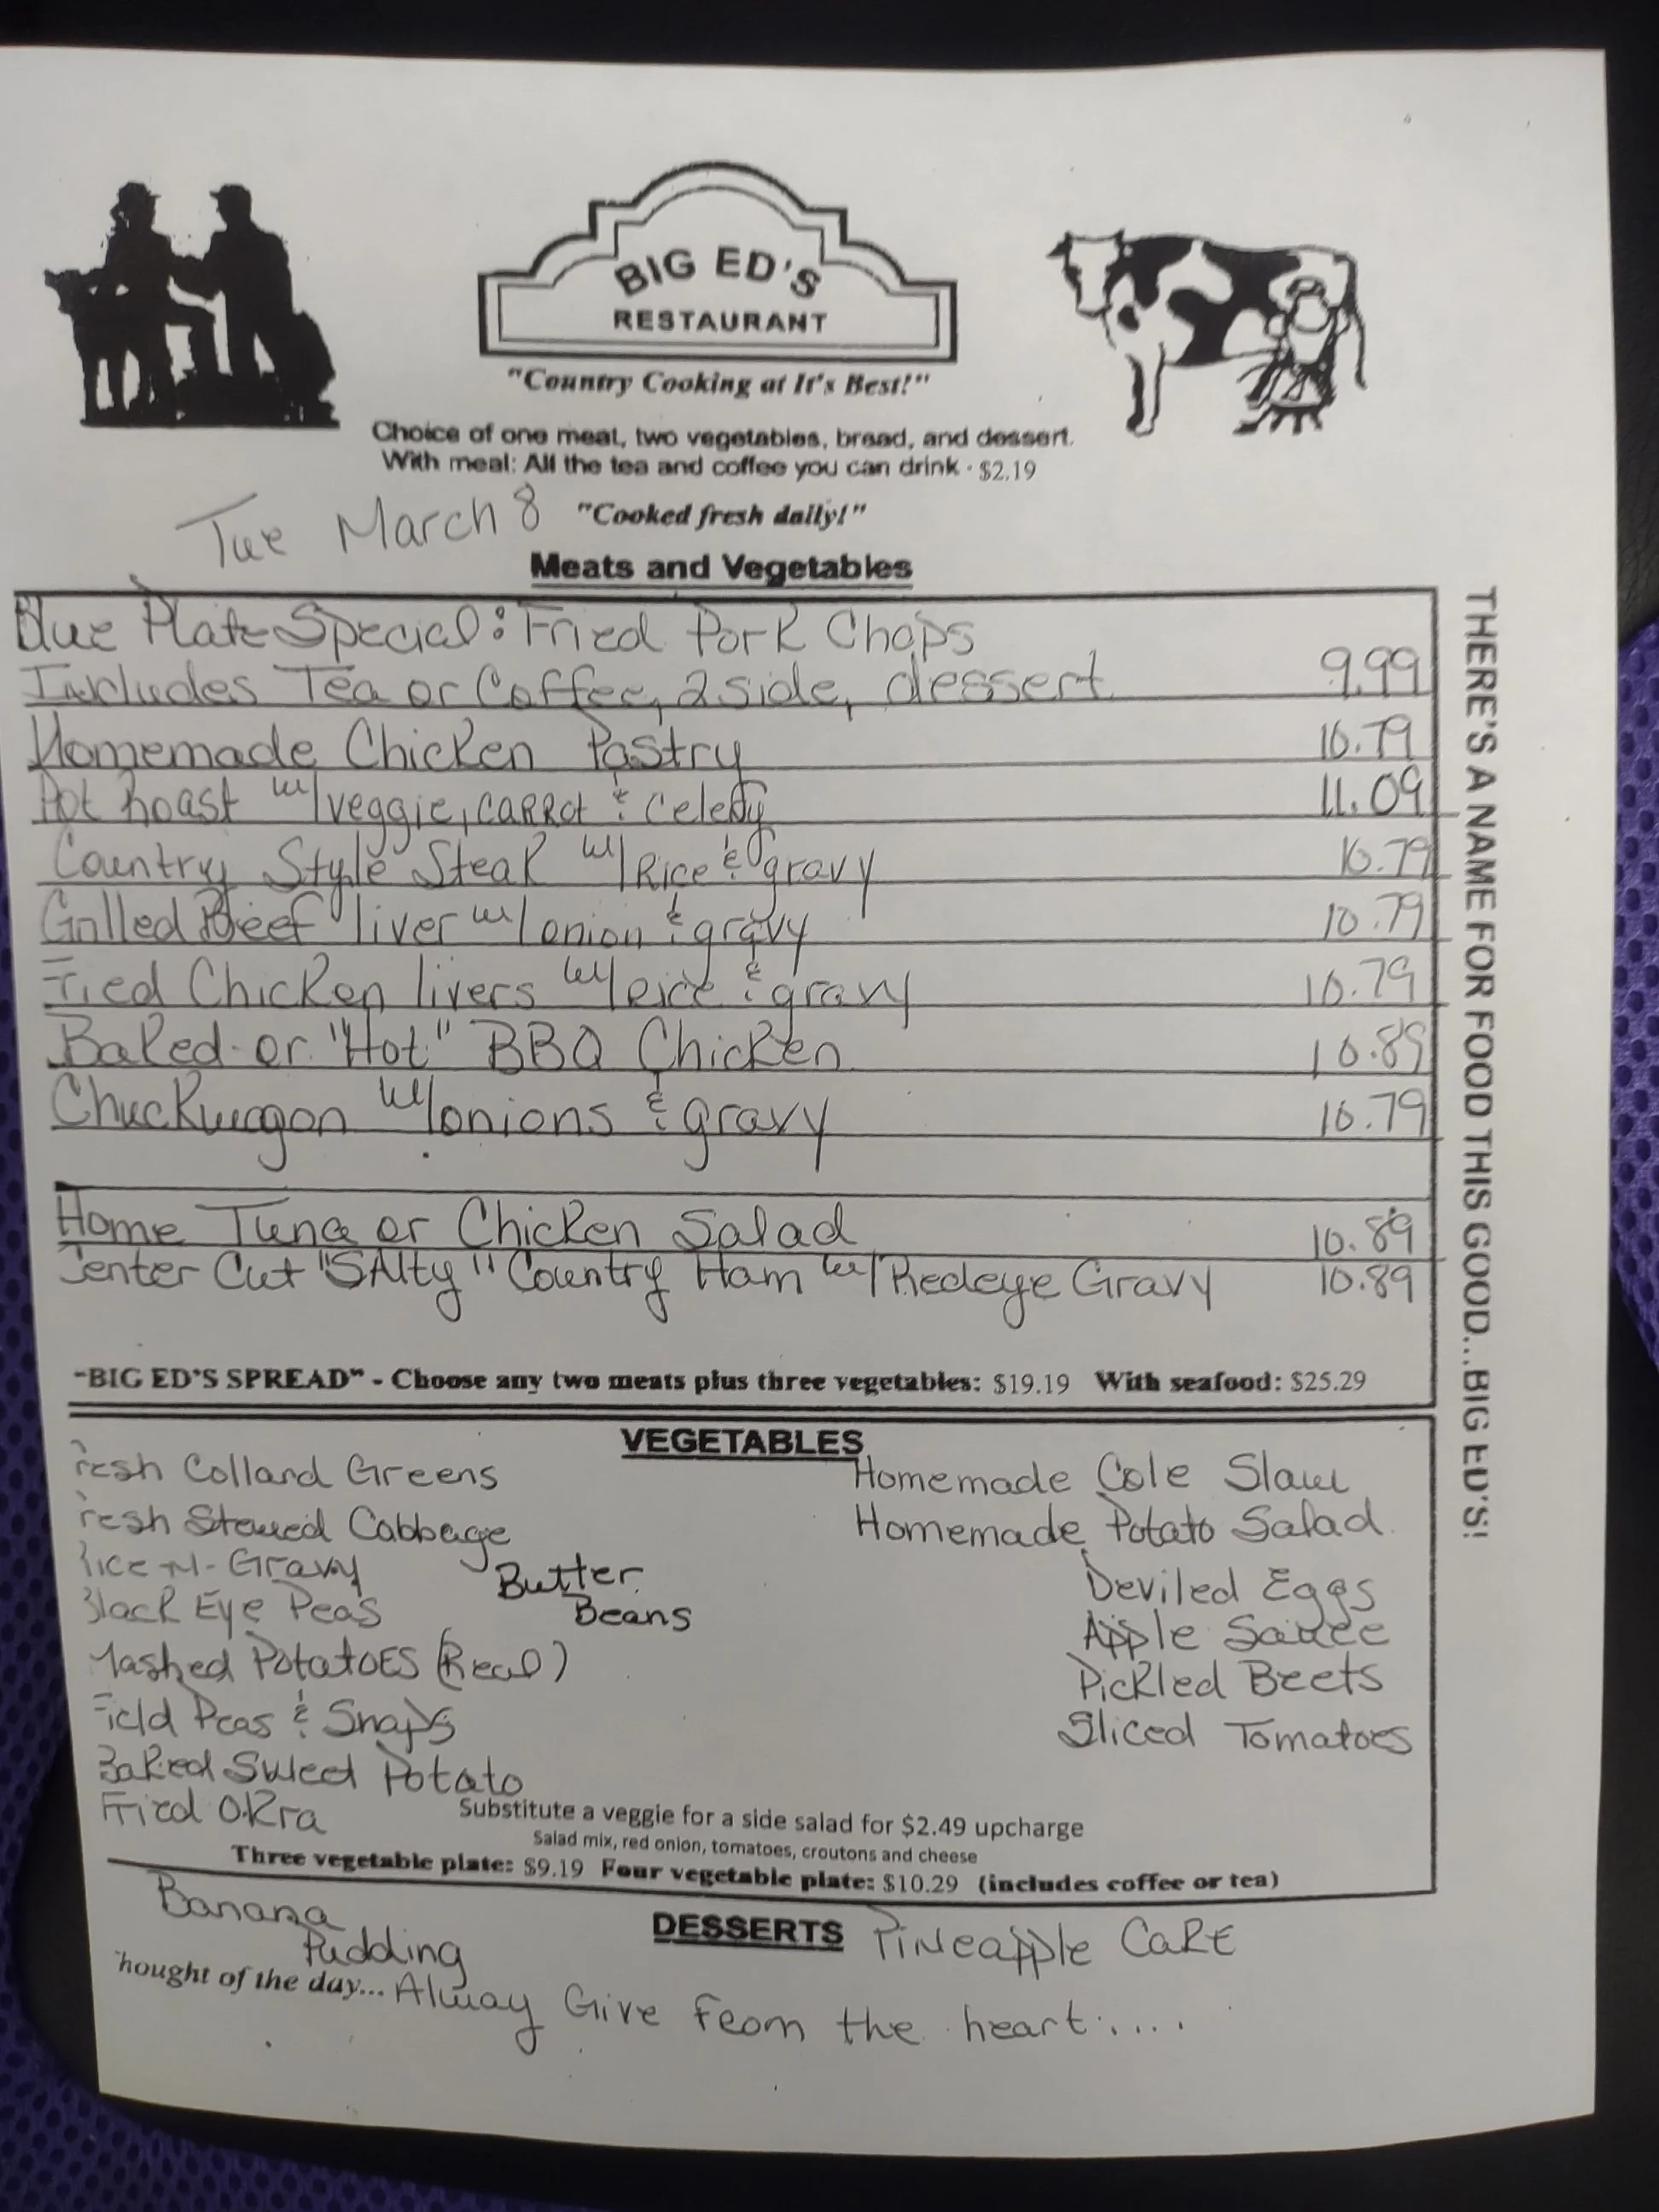 BIG ED'S
RESTAURANT
"Country Cooking at It's Best!"
Choice of one meat, two vegetables, bread, and dessert.
With meal: All the tea and coffee you can drink - $2.19
Tue March 8
"Cooked fresh daily!"
Meats and Vegetables
Blue Plate Special: Fried Pork Chops
Includes Tea or Coffee, 2 side, dessert 9.99
Homemade Chicken Pastry 10.79
Pot Roast w/veggie, carrot & celery 11.09
Country Style Steak w/Rice & gravy 10.79
Grilled Beef liver w/onion & gravy 10.79
Fried Chicken livers w/rice & gravy 10.79
Baked or "Hot" BBQ Chicken 10.89
Chuckwagon w/onions & gravy 10.79
Home Tuna or Chicken Salad 10.89
Center Cut "SAlty" Country Ham w/Redeye Gravy 10.89
"BIG ED'S SPREAD" - Choose any two meats plus three vegetables: $19.19 With seafood: $25.29
THERE'S A NAME FOR FOOD THIS GOOD...BIG ED'S!
VEGETABLES
resh Collard Greens
resh Stewed Cabbage
Rice -N- Gravy
Black Eye Peas
Butter
Beans
Mashed Potatoes (Real)
Field Peas & Snaps
Baked Sweet Potato
Fried Okra
Homemade Cole Slaw
Homemade Potato Salad
Deviled Eggs
Apple Sauce
Pickled Beets
Sliced Tomatoes
Substitute a veggie for a side salad for $2.49 upcharge
Salad mix, red onion, tomatoes, croutons and cheese
Three vegetable plate: $9.19 Four vegetable plate: $10.29 (includes coffee or tea)
Banana
Pudding
DESSERTS
Pineapple Cake
hought of the day... Alway Give From the heart.....